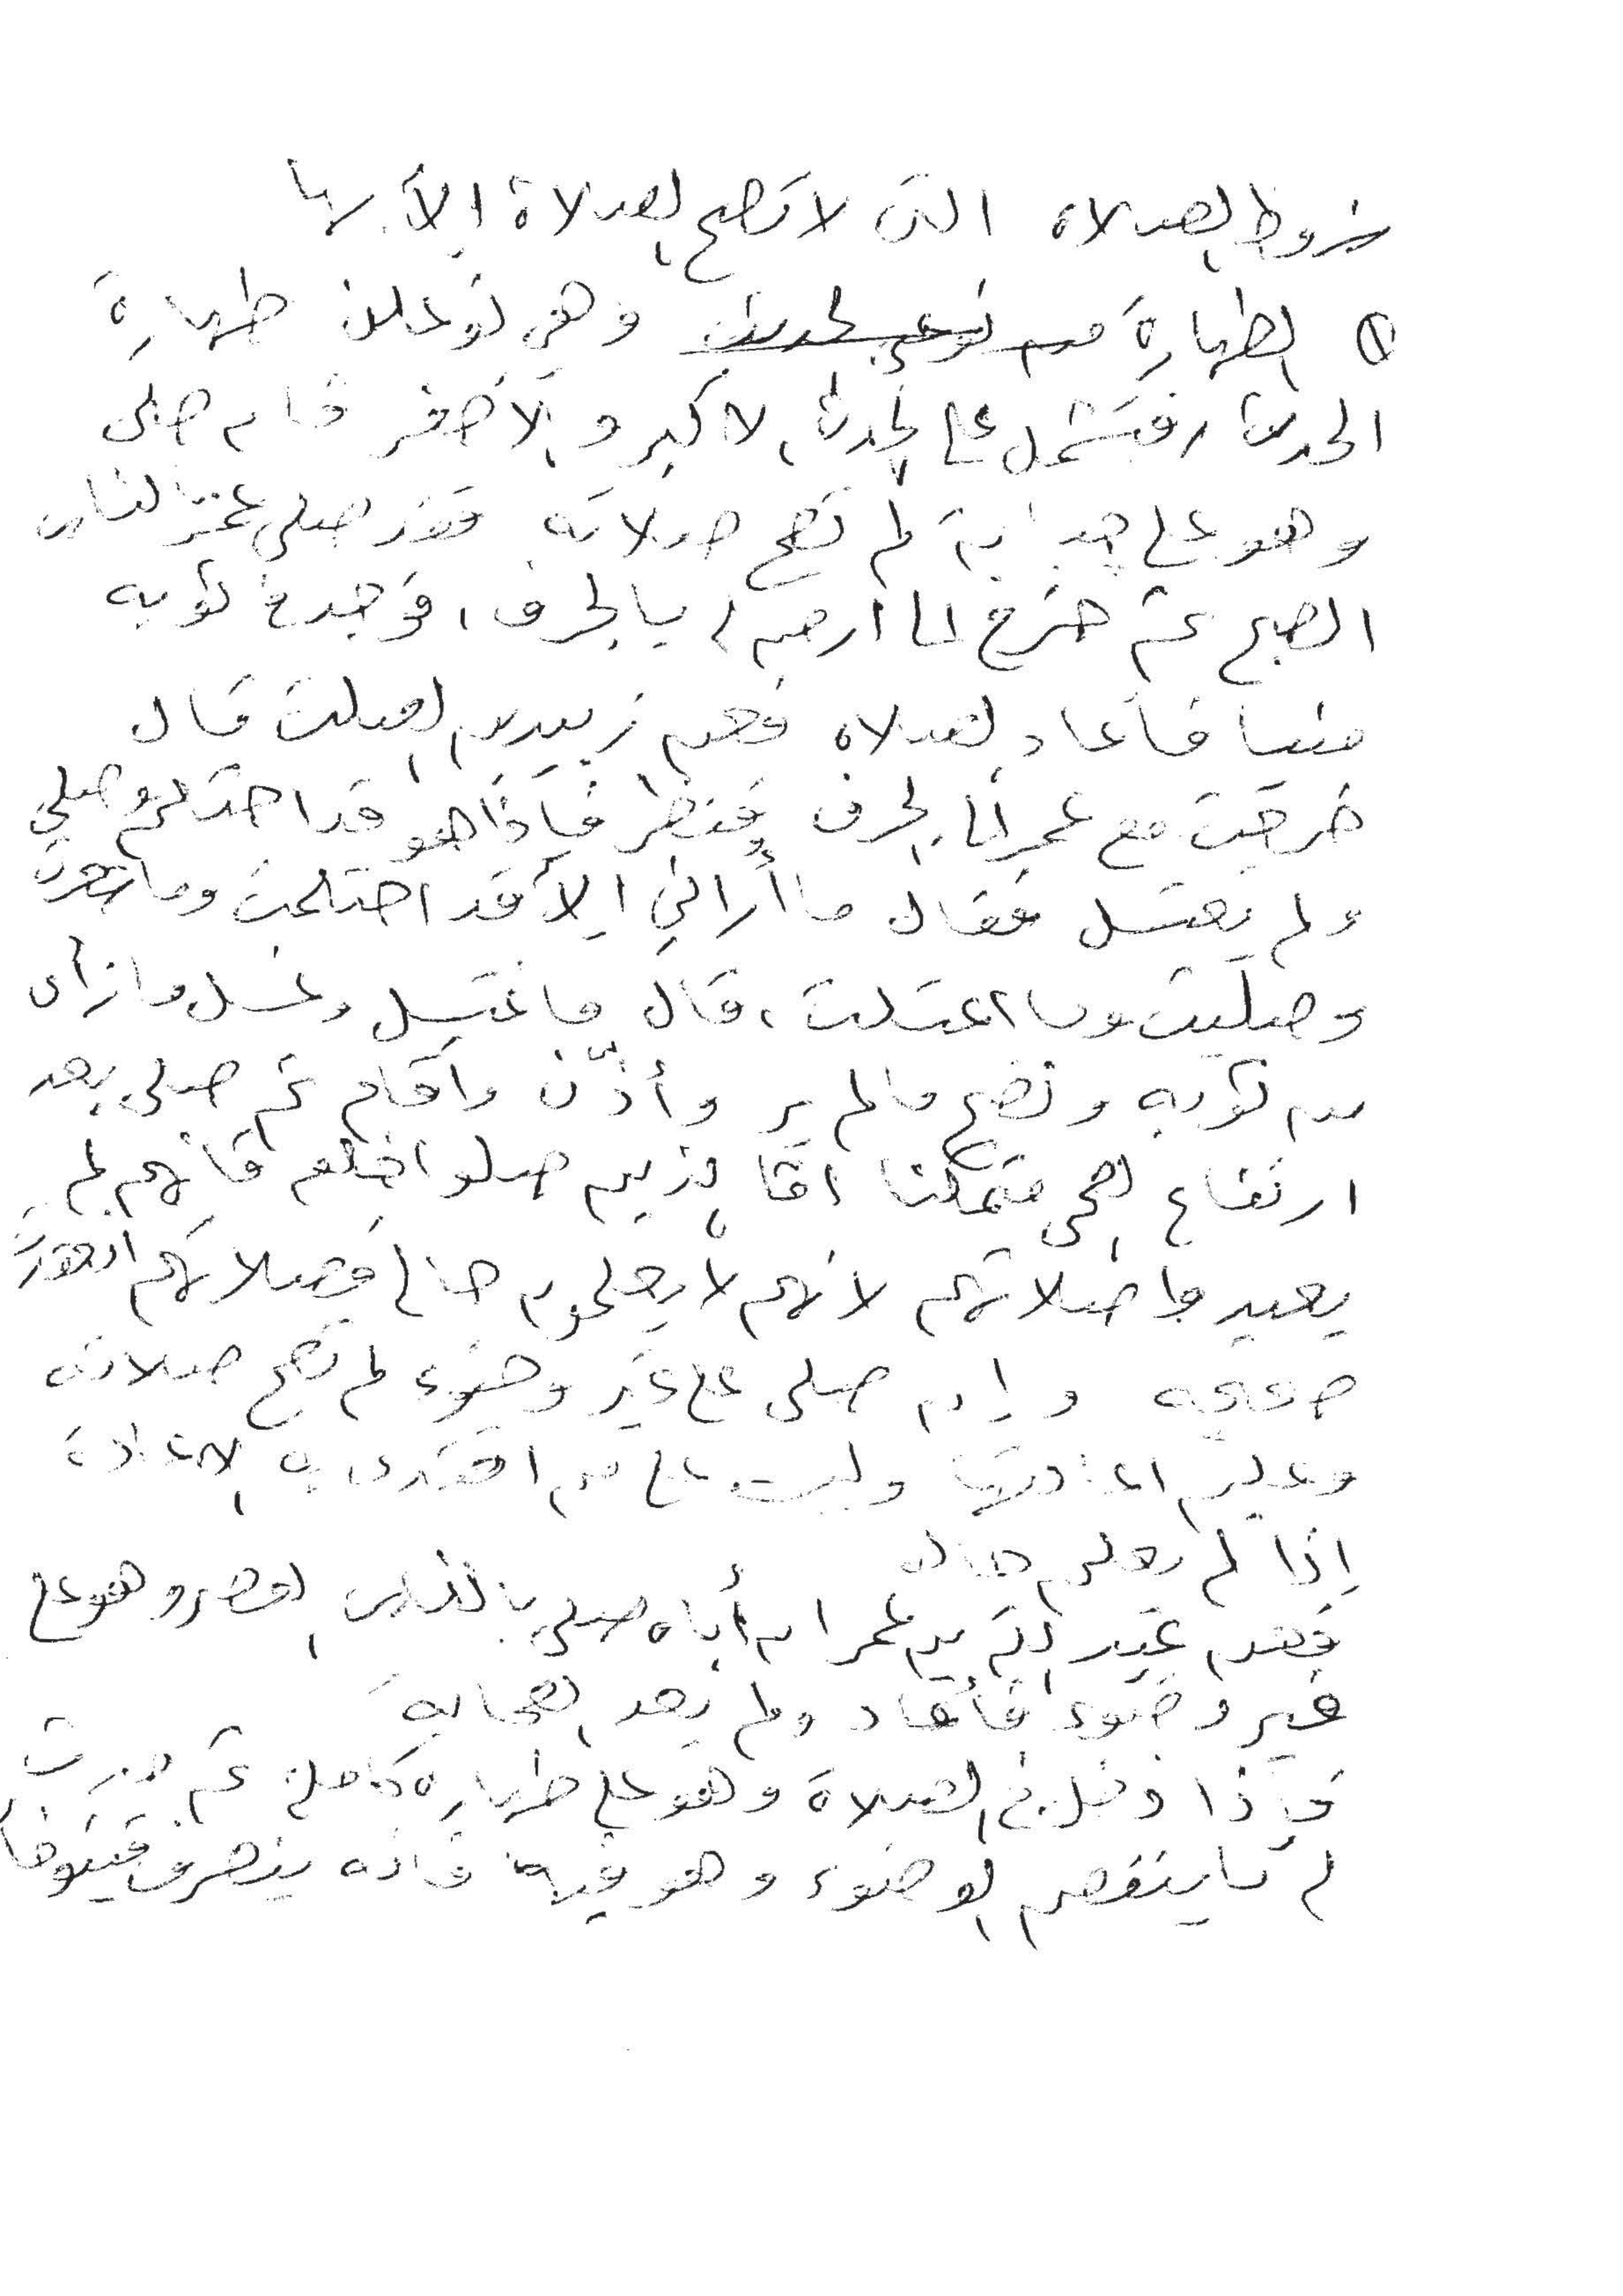 شروط الصلاة التي لا تصح الصلاة إلا بها
① الطهارة من نوعي الحدث وهي نوعان طهارة
الحدث، فتشمل على الحدث الأكبر والأصغر فإن صلى
وهو على جنابة لم تصح صلاته فقد صلى عمر بالناس
الصبح ثم خرج إلى أرض بالجرف، فوجد في ثوبه
منيا فأعاد الصلاة فعن زييد بن الصلت قال
خرجت مع عمر إلى الجرف فنظر فإذا هو قد احتلم وصلى
ولم يغتسل فقال ما أراني إلا قد احتلمت وما شعرت
وصليت وما اغتسلت، قال فاغتسل وغسل ما رأى
من ثوبه ونضح ما لم ير وأذّن وأقام ثم صلى بعد
ارتفاع الضحى متمكنا أما الذين صلوا خلفه فإنهم لم
يعيدوا صلاتهم لأنهم لا يعلمون حاله فصلاتهم انعقدت
صحيحه وإن صلى على غير وضوء لم تصح صلاته
وعليه اعادتها وليست على من اقتدى به الاعادة
إذا لم يعلم حاله
فعن عبد الله بن عمر ان أباه صلى بالناس العصر وهو على
غير وضوء فأعاد ولم يعد الصحابة
فإذا دخل في الصلاة وهو على طهارة كاملة ثم حدث
له ما ينقض الوضوء وهو فيها فانه ينصرف فيتوضأ